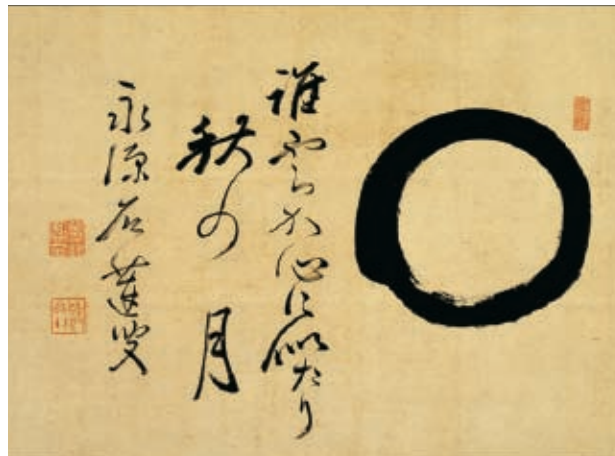 誰か心に似たり
秋の月
永源石蓮叟